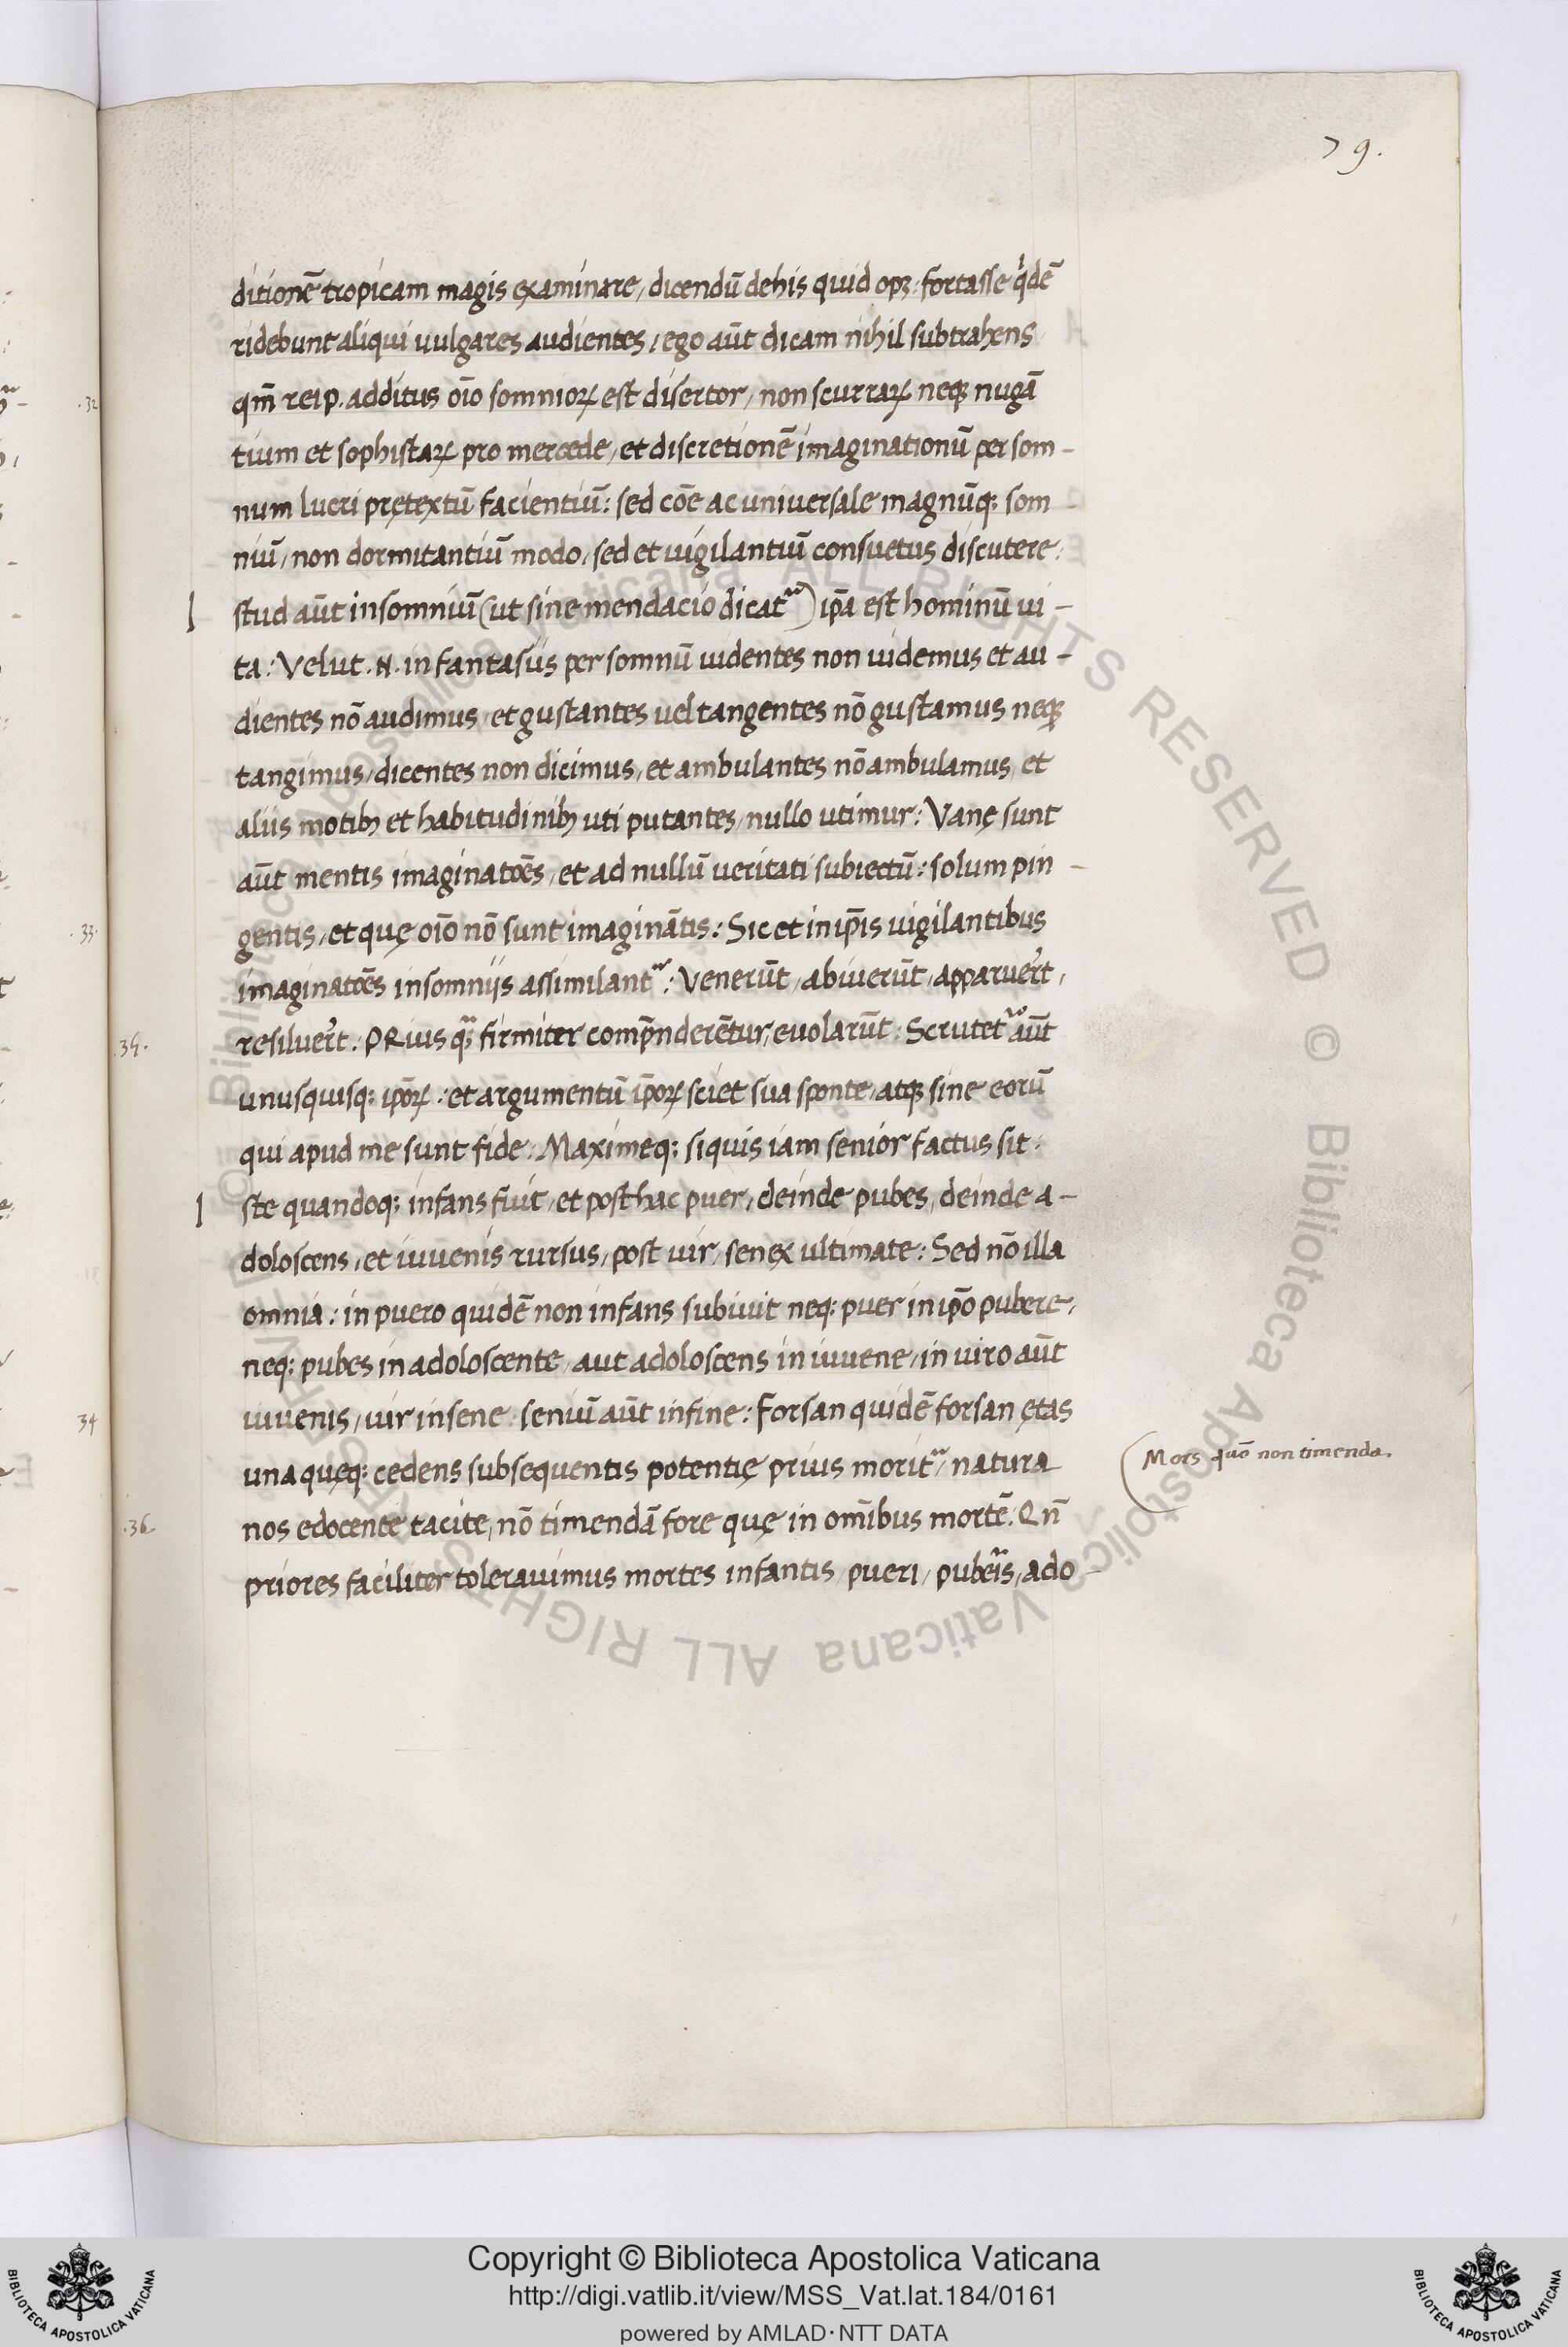 79.
ditionē tropicam magis examinare, dicendū de his quid opꝫ: fortasse qͥdē
ridebunt aliqui vulgares audientes, ego aūt dicam nihil subtrahens
qm̄ reip. additus oīo somnioꝝ est disertor, non scurraꝝ neqꝫ nugā
tium et sophistaꝝ pro mercede, et discretionē imaginationū per som-
num lucri prętextū facientiū: sed cōe ac universale magnūqꝫ som
niū, non dormitantiū modo, sed et vigilantiū consuetus discutere.
I stud aūt insomniū (ut sine mendacio dicatᵘʳ) ip̄a est hominū vi-
ta: Velut .N. in fantasiis per somnū videntes non videmus et au-
dientes nō audimus, et gustantes vel tangentes nō gustamus neqꝫ
tangimus, dicentes non dicimus, et ambulantes nō ambulamus, et
aliis motibꝫ et habitudinibꝫ uti putantes, nullo utimur: Vanę sunt
aūt mentis imaginatōēs, et ad nullū veritati subiectū: solum pin-
gentis, et quę oīo nō sunt imaginātis: Sic et in ip̄is vigilantibus
imaginatōēs insomniis assimilantᵘʳ: Venerūt, abiverūt, apparuer̄t,
resiluer̄t. PRius qᵃꝫ firmiter comp̄nderētur, evolarūt: Scrutetᵘʳ aūt
unusquisqꝫ ip̄oꝝ: et argumentū ip̄oꝝ sciet sua sponte, atqꝫ sine eorū
qui apud me sunt fide: Maximeqꝫ siquis iam senior factus sit.
I ste quandoqꝫ infans fuit, et posthac puer, deinde pubes, deinde a-
doloscens, et iuvenis rursus, post vir, senex ultimate: Sed nō illa
omnia: in puero quidē non infans subivit neqꝫ puer in ip̄o pubere,
neqꝫ pubes in adoloscente, aut adoloscens in iuvene, in viro aūt
iuvenis, vir in sene, seniū aūt in fine: Forsan quidē forsan ętas
una quęqꝫ cedens subsequentis potentię prius moritᵘʳ, natura
nos edocente tacite, nō timendā fore quę in om̄ibus mortē. Qn̄
priores faciliter toleravimus mortes infantis, pueri, puberis, ado-
Mors quō non timenda.
.32
.33.
.35.
34
.36.
© Biblioteca Apostolica Vaticana ALL RIGHTS RESERVED © Biblioteca Apostolica Vaticana ALL RIGHTS RESERVED
Copyright © Biblioteca Apostolica Vaticana
http://digi.vatlib.it/view/MSS_Vat.lat.184/0161
powered by AMLAD·NTT DATA
BIBLIOTECA APOSTOLICA VATICANA
BIBLIOTECA APOSTOLICA VATICANA